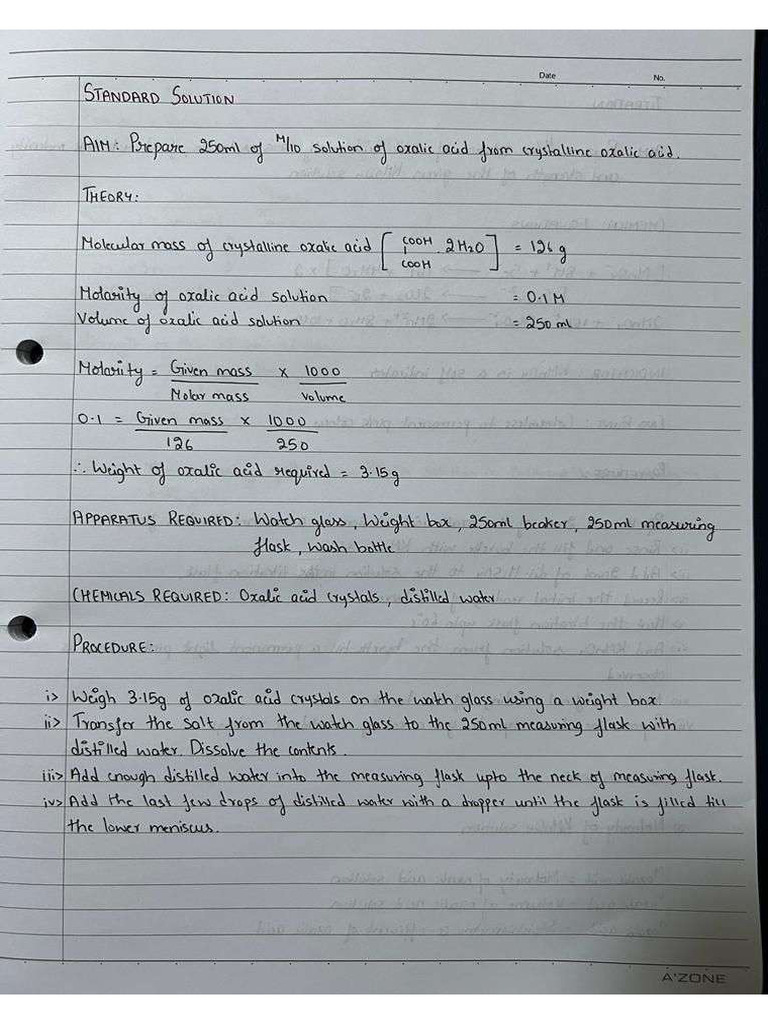 Date No.
STANDARD SOLUTION
AIM: Prepare 250ml of M/10 solution of oxalic acid from crystalline oxalic acid.
THEORY:
Molecular mass of crystalline oxalic acid [COOH COOH . 2H2O] = 126 g
Molarity of oxalic acid solution = 0.1 M
Volume of oxalic acid solution = 250 ml
Molarity = Given mass / Molar mass × 1000 / Volume
0.1 = Given mass / 126 × 1000 / 250
∴ Weight of oxalic acid required = 3.15g
APPARATUS REQUIRED: Watch glass, Weight box, 250ml beaker, 250ml measuring
flask, wash bottle
CHEMICALS REQUIRED: Oxalic acid crystals, distilled water
PROCEDURE:
i> Weigh 3.15g of oxalic acid crystals on the watch glass using a weight box.
ii> Transfer the salt from the watch glass to the 250ml measuring flask with
distilled water. Dissolve the contents.
iii> Add enough distilled water into the measuring flask upto the neck of measuring flask.
iv> Add the last few drops of distilled water with a dropper until the flask is filled till
the lower meniscus.
A'ZONE